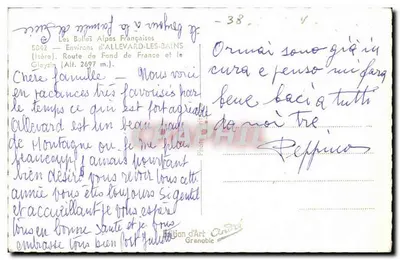 - 38. v
Le bonjour a la famille de Lucie
Les Belles Alpes Françaises
5503 - Environs d'ALLEVARD-LES-BAINS
(Isère). Route de Fond de France et le
Gleyzin (Alt. 2697 m.)
Chère famille - Nous voici
en vacances très favorisés par
le temps ce qui est fort agréable
Allevard est un beau pays
de Montagne ou je me plais
beaucoup j'aurais pourtant
bien désiré vous revoir cette
année vous êtes toujours si gentil
et accueillant je vous espère
tous en bonne santé et je vous
embrasse tous bien fort Juliette
Ormai sono già in
cura e penso mi farà
bene baci a tutti
da noi tre
Peppino
Edition d'Art André
Grenoble